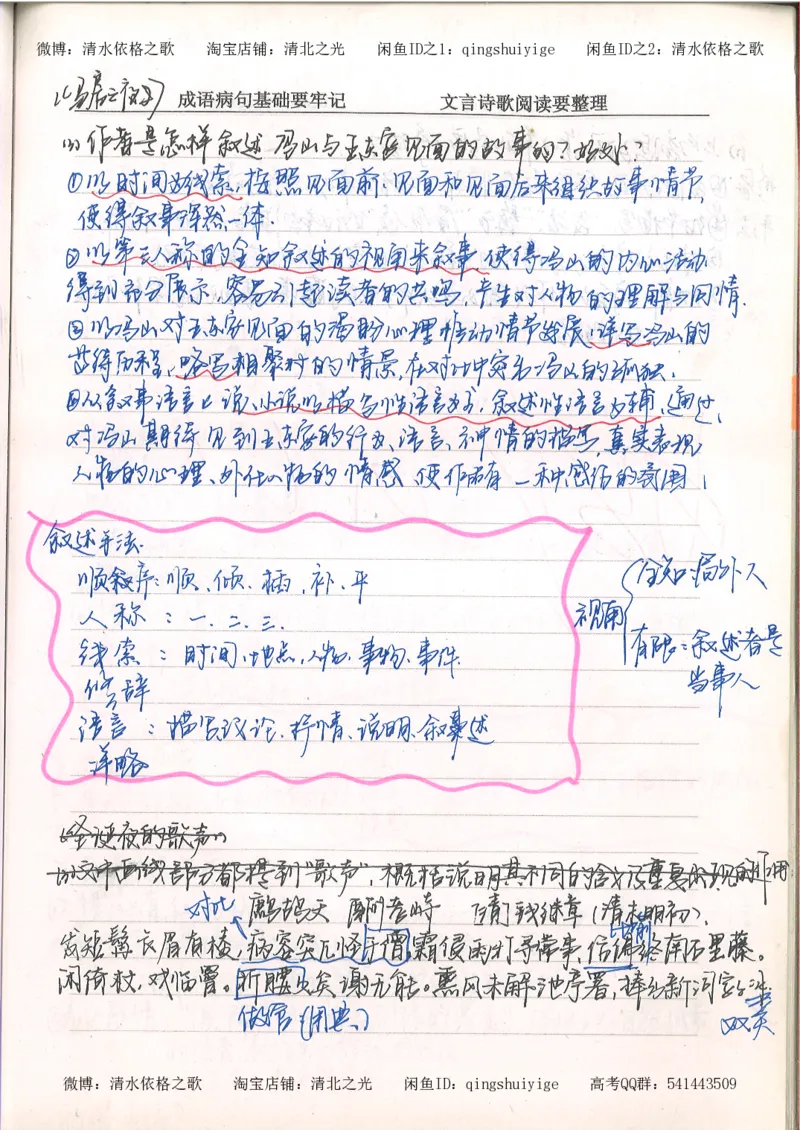 微博：清水依格之歌 淘宝店铺：清北之光 闲鱼ID之1：qingshuiyige 闲鱼ID之2：清水依格之歌
成语病句基础要牢记 文言诗歌阅读要整理
(1) 作者是怎样叙述冯山与王东家见面的故事的？好处？
①以时间为线索，按照见面前、见面和见面后来组织故事情节，
使得叙事浑然一体．
②以第三人称的全知叙述的视角来叙事，使得冯山的内心活动
得到充分展示，容易引起读者的共鸣，产生对人物的理解与同情．
③以冯山对王东家见面的渴盼心理推动情节发展，详写冯山的
等待历程，略写相聚时的情景，在对比中突出冯山的孤独．
④从叙事语言上说，小说以描写性语言为主，叙述性语言为辅，通过
对冯山期待见到王东家的行为、语言、神情的描写，真实表现
人物的心理、外化人物的情感，使作品有一种感伤的氛围；
叙述手法
顺叙序：顺、倾、插、补、平
人称：一、二、三．
线索：时间、地点、人物、事物、事件
修辞
语言：描写、议论、抒情、说明、叙事述
详略
视角
全知：局外人
有限：叙述者是
当事人
圣诞夜的歌声
(1)文中画线部分都提到“歌声”，概括说明其不同的含义及重复出现的作用
对比 鹧鸪天 酬孝峙 [清]钱继章（清末明初）
发短髯长眉有棱，病容突兀怪于僧。霸侵雨打寻常事，仿佛终南石里藤。
闲倚杖，戏临罾。折腰久矣谢无能。熏风未解池亭暑，捧出新词字字冰。
做官（用典）
双关
微博：清水依格之歌 淘宝店铺：清北之光 闲鱼ID：qingshuiyige 高考QQ群：541443509